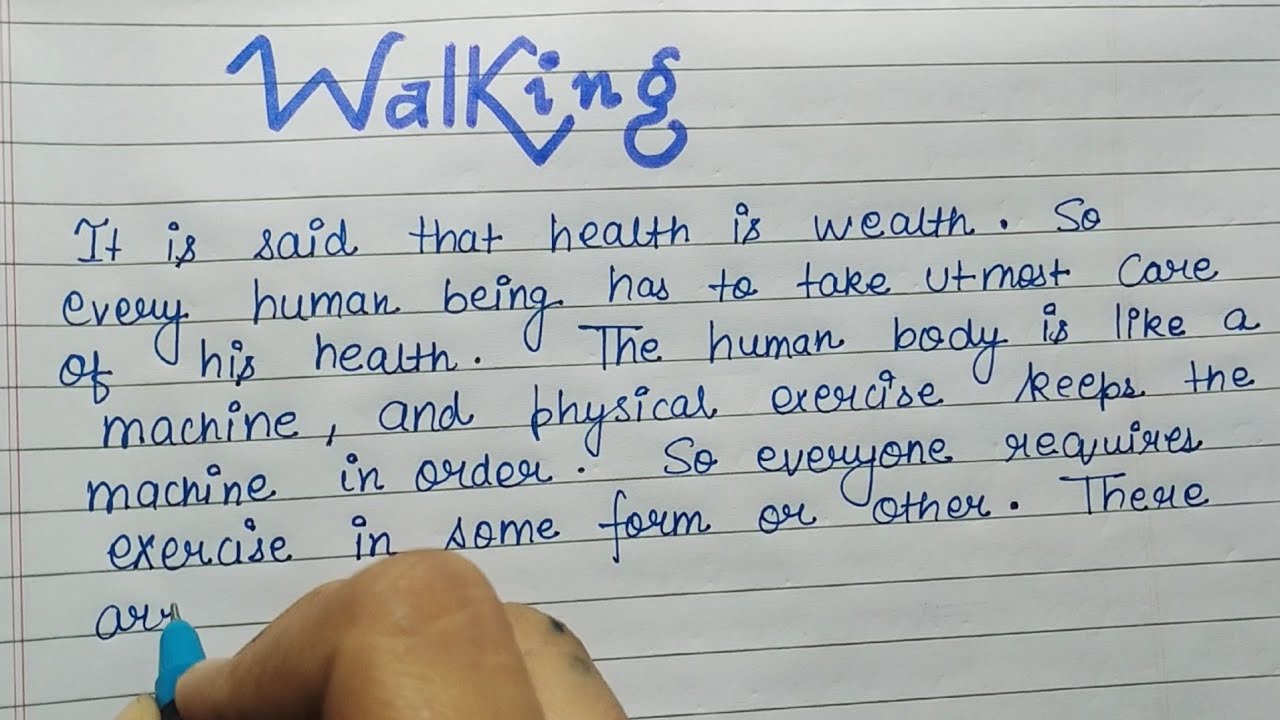 Walking
It is said that health is wealth. So
every human being has to take utmost care
of his health. The human body is like a
machine, and physical exercise keeps the
machine in order. So everyone requires
exercise in some form or other. There